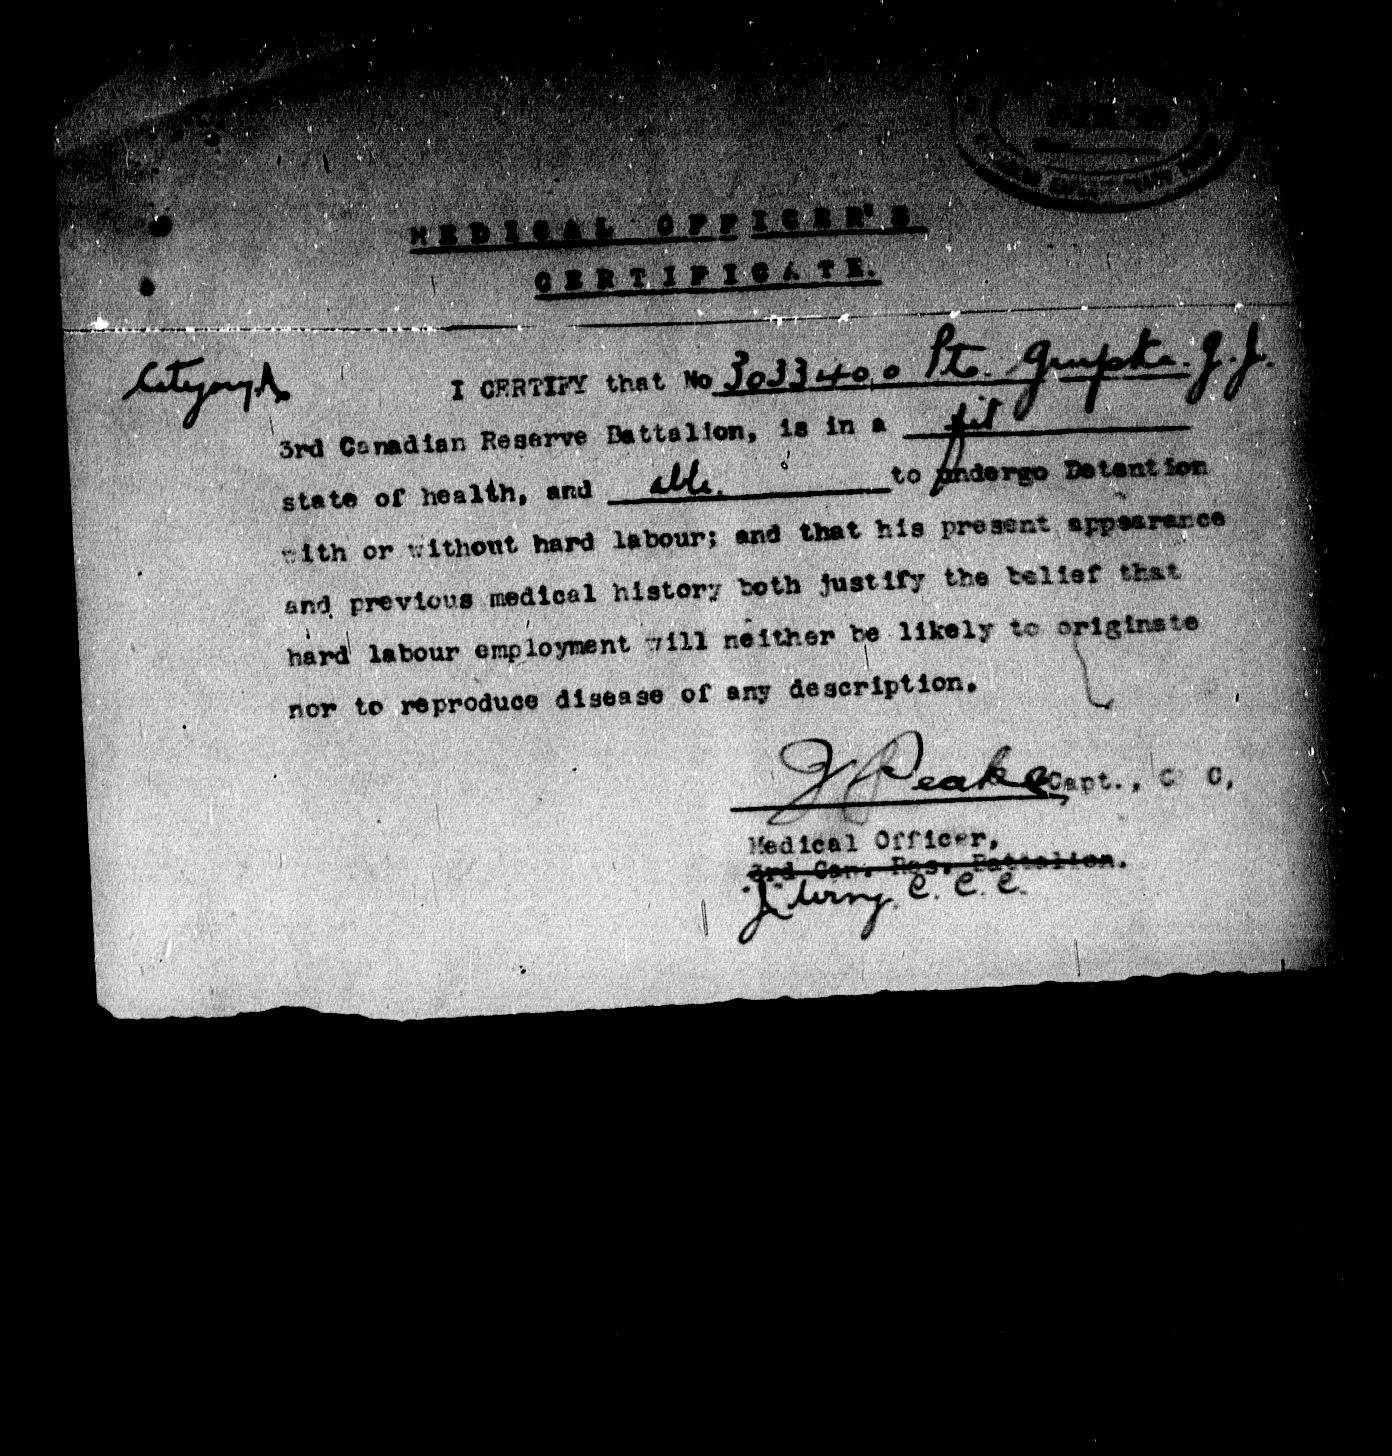 MEDICAL OFFICER'S
CERTIFICATE.
Category A
I CERTIFY that No 3033400 Pte. J. J.
3rd Canadian Reserve Battalion, is in a fit
state of health, and able. to undergo Detention
with or without hard labour; and that his present appearance
and previous medical history both justify the belief that
hard labour employment will neither be likely to originate
nor to reproduce disease of any description.
Peake Capt., C C,
Medical Officer,
3rd Can. Res. Battalion.
"J" Wing. C. C. C.